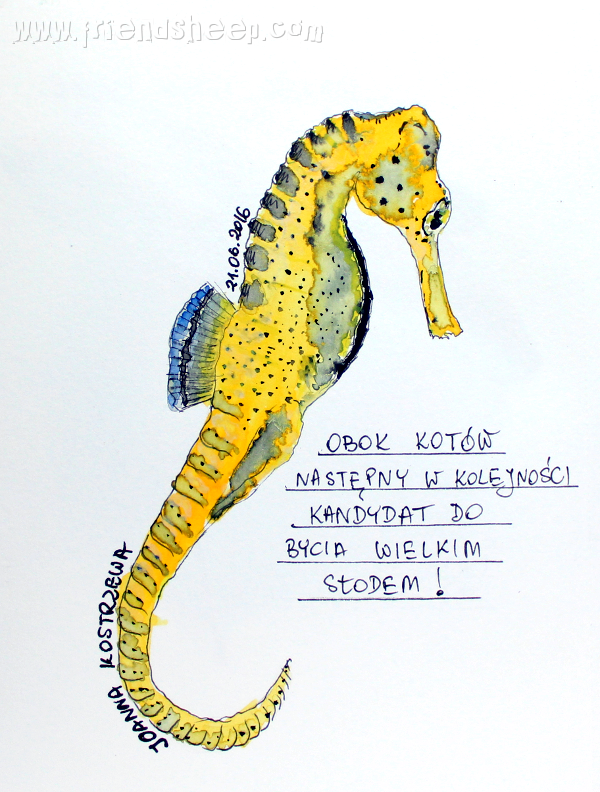 www.friendsheep.com
21.06.2016
OBOK KOTÓW
NASTĘPNY W KOLEJNOŚCI
KANDYDAT DO
BYCIA WIELKIM
SŁODEM!
JOANNA KOSTRZEWA